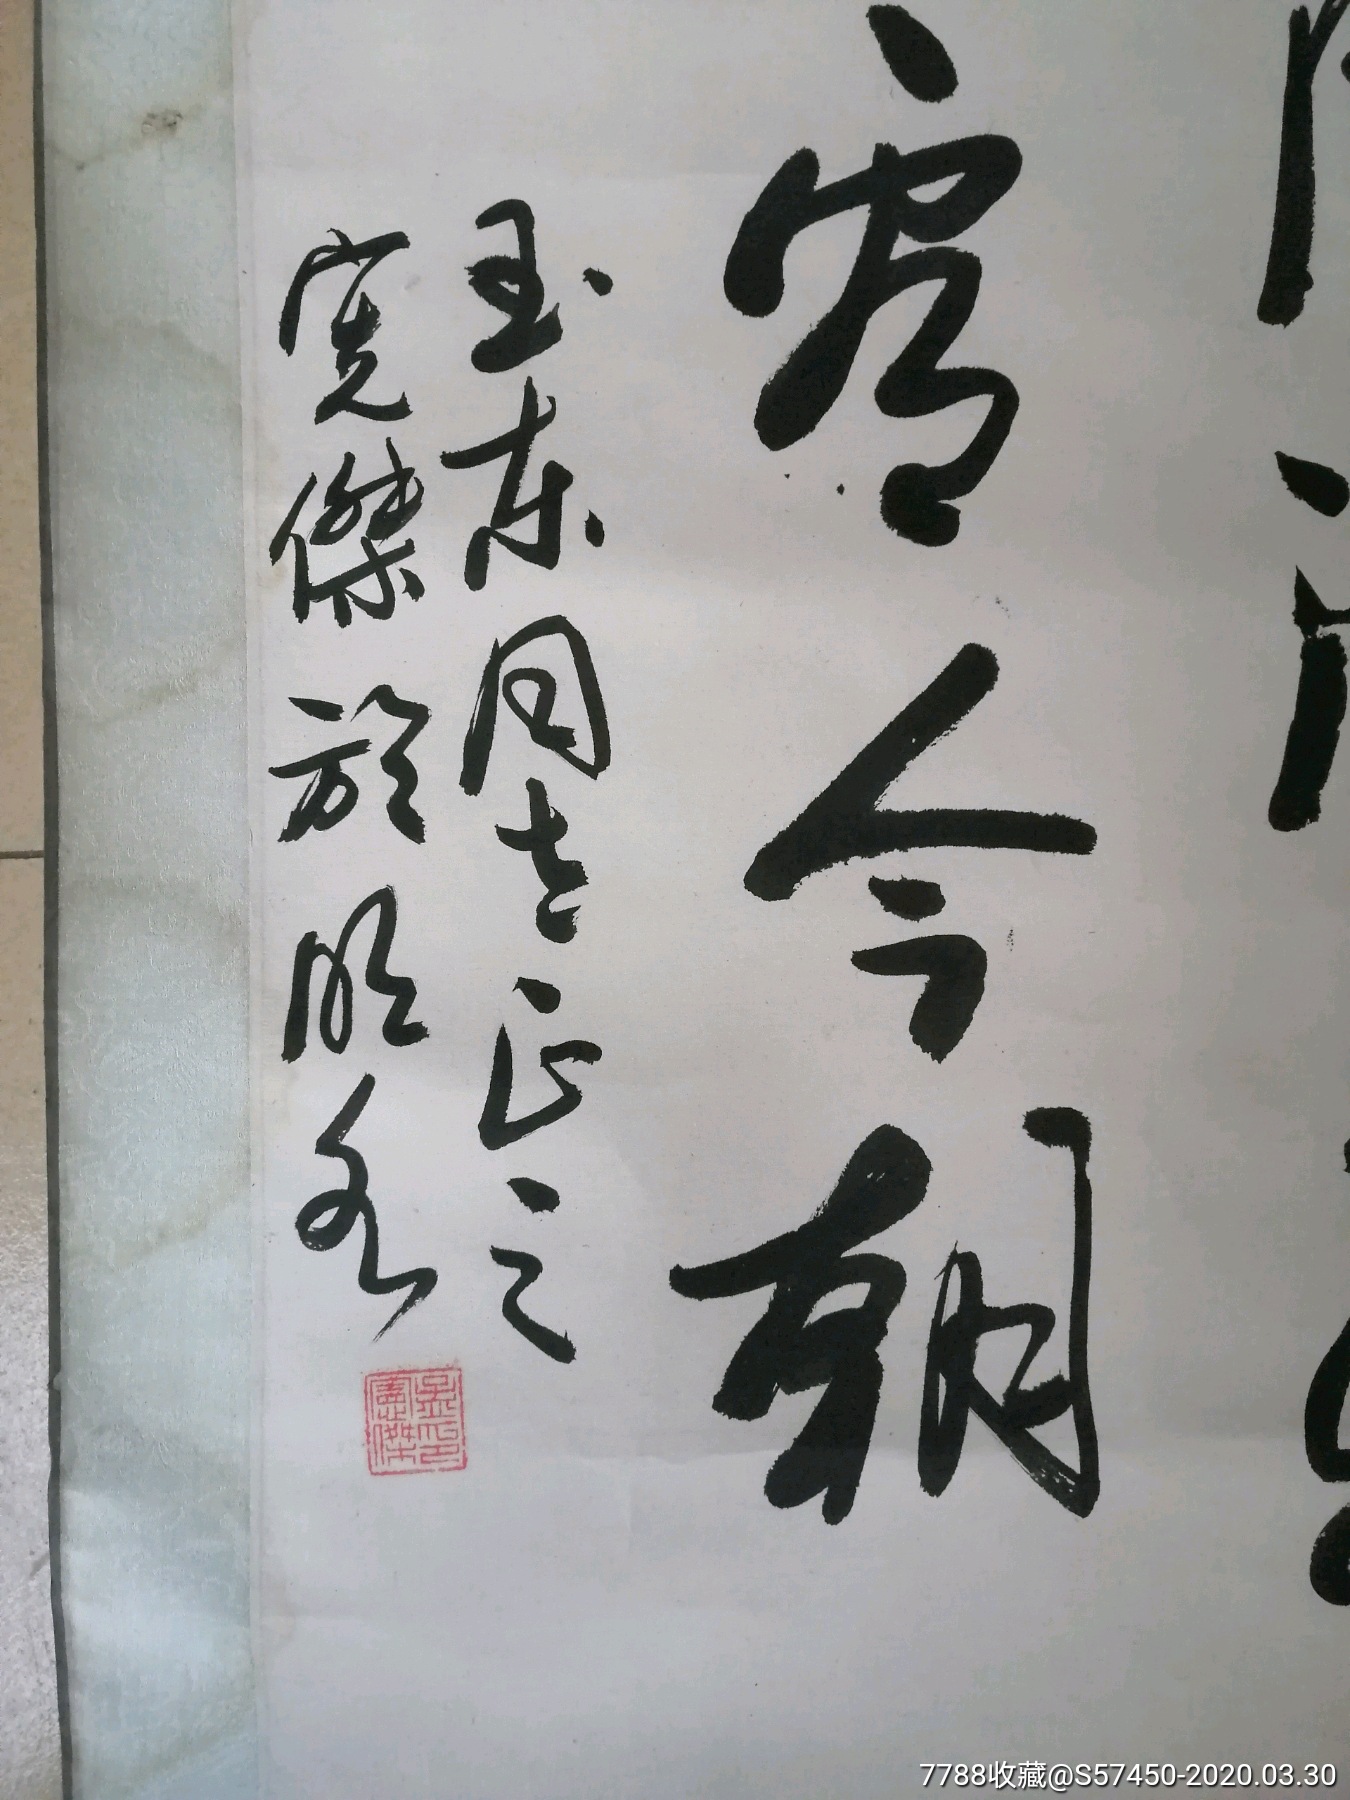 看今朝
玉东同志正之
宪傑於明
孟印憲傑
7788收藏@S57450-2020.03.30